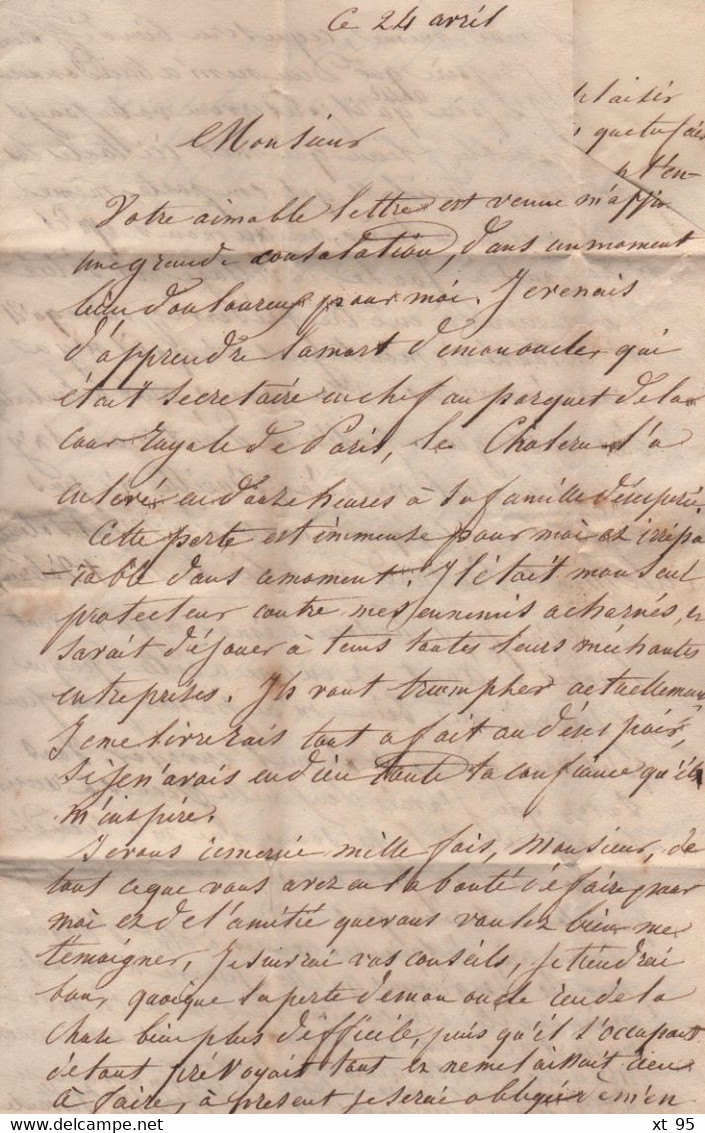 Ce 24 avril
plaisir
que tu fais
t'en-
Monsieur
Votre aimable lettre est venue m'offrir
une grande consolation, dans un moment
bien douloureux pour moi. Je venais
d'apprendre la mort de mon oncle, qui
était secrétaire en chef au parquet de la
cour royale de Paris, le Cholera l'a
enlevé en douze heures à sa famille désespérée.
Cette perte est immense pour moi et irrépa
-rable dans ce moment. Il était mon seul
protecteur contre mes ennemis acharnés, et
savait déjouer à tems toutes leurs méchantes
entreprises. Ils vont triumpher actuellement
Je me livrerais tout a fait au désespoir,
si je n'avais en dieu toute la confiance qu'il
m'inspire.
Je vous remercie mille fois, Monsieur, de
tout ce que vous avez eu la bonté de faire pour
moi et de l'amitié que vous voulez bien me
témoigner, Je suivrai vos conseils, je tiendrai
bon, quoique la perte de mon oncle rende la
chose bien plus difficile, puis qu'il s'occupant
de tout prévoyait tout et ne me laissait rien
à faire, à présent je serai obligée de m'en
xt 95